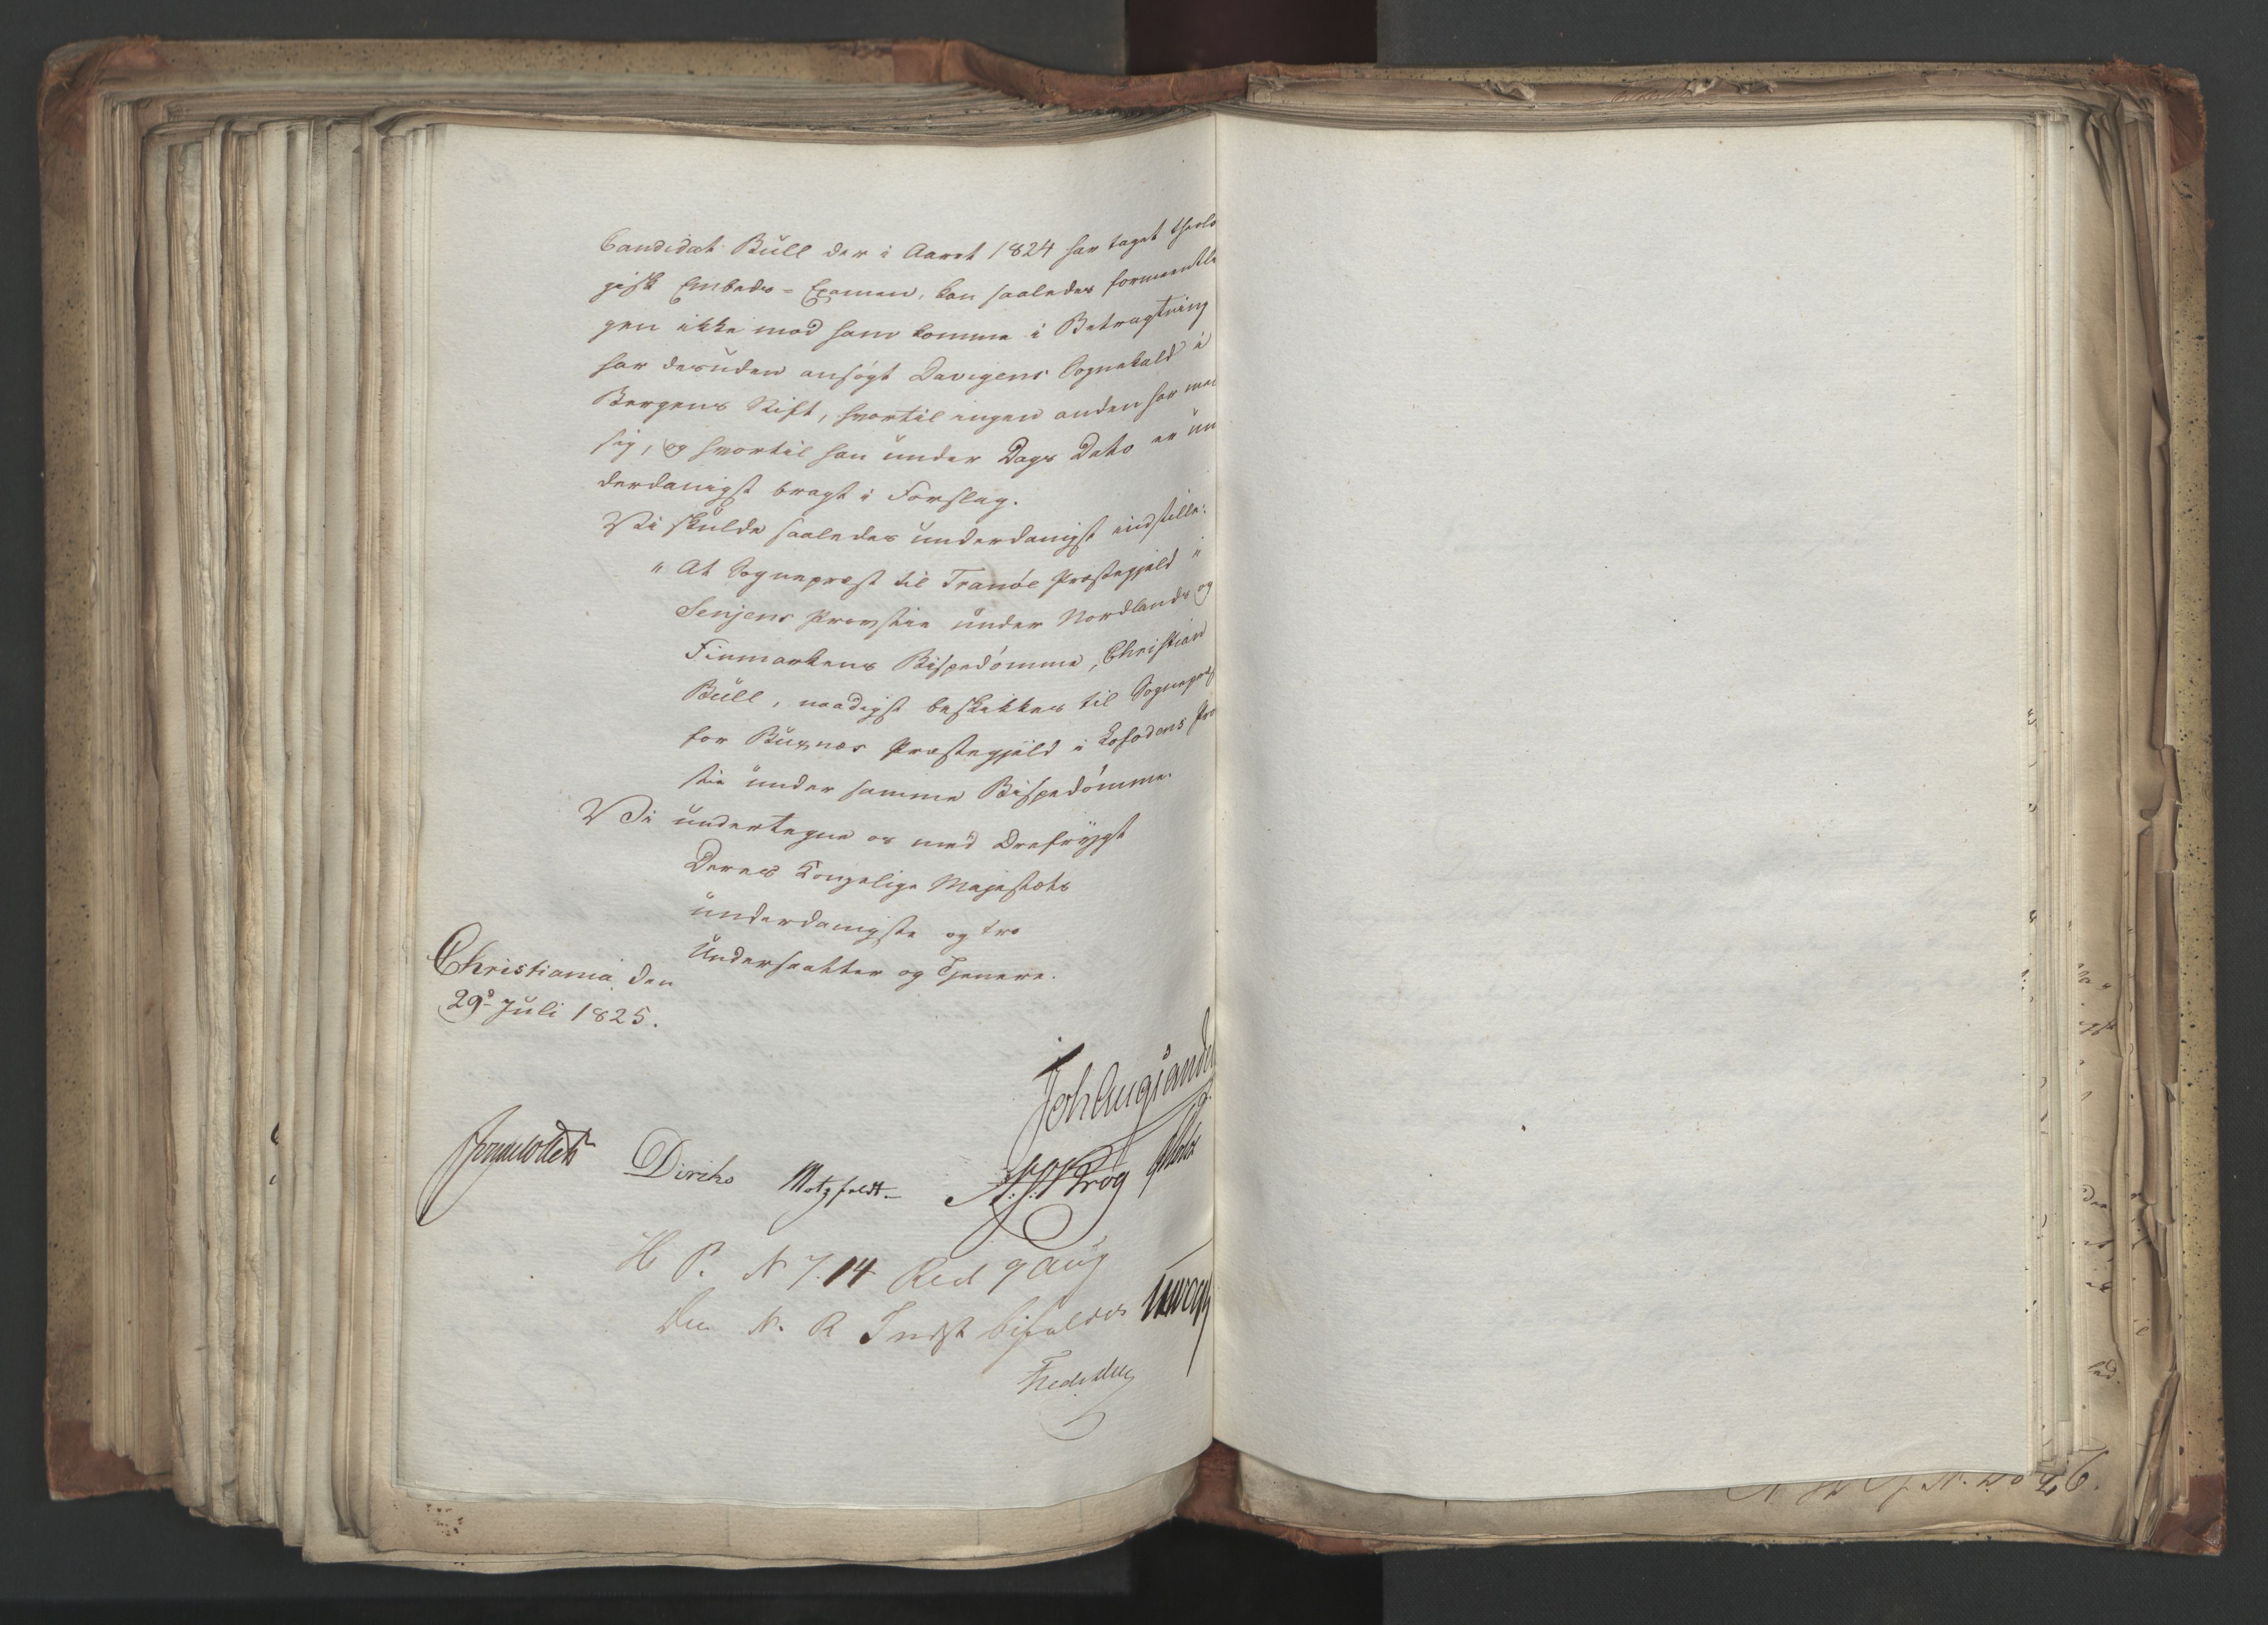 Candidat Bull der i Aaret 1824 har taget theolo
gisk Embeds-Examen, kan saaledes formeentli
gen ikke mod ham komme i Betragtning
har desuden ansøgt Davigens Sognekald i
Bergens Stift, hvortil ingen anden har me
sig, og hvortil han under Dags Dato er un
derdanigst bragt i Forslag.
Vi skulde saaledes underdanigst indstille:
"At Sognepræst til Tranøe Præstegjeld i
Senjens Provstie under Nordlands og
Finmarkens Bispedømme, Christian
Bull, naadigst beskikkes til Sognepræs
for Buxnæs Præstegjeld i Lofodens Pro
stie under samme Bispedømme.
Vi undertegne os med Ærefrygt
Deres Kongelige Majestæts
underdanigste og tro
Undersaatter og Tjenere.
Christiania den
29d Juli 1825.
Joh Aug Sande
Diriks Motzfeldt A.J. Krog Holst
H P. N 7.14 Red 9 Aug
Den N. R Indst bifaldes